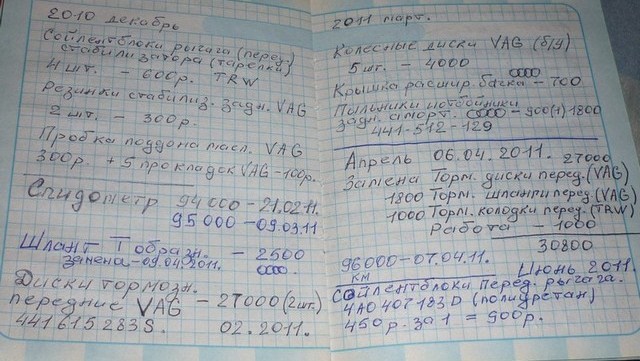 2010 декабрь
Сойлентблоки рычага (перед.)
стабилизатора (тарелки)
4 шт. - 600р. TRW
Резинки стабилиз. задн. VAG
2 шт. - 300р.
Пробка поддона масл. VAG
300р. + 5 прокладок VAG - 100р.
Спидометр 94000 - 21.02.11.
95000 - 09.03.11
Шланг Т образн. - 2500
замена - 09.04.2011.
Диски тормозн.
передние VAG - 27000 (2 шт.)
441615283S. 02.2011.
2011 март.
Колесные диски VAG (б/у)
5 шт. - 4000
Крышка расшир. бачка - 700
Пыльники и отбойники
задн. аморт. - 900(1) 1800
441-512-129
Апрель 06.04.2011. 27000
Замена Торм. диски перед. (VAG)
1800 Торм. шланги перед. (VAG)
1000 Торм. колодки перед. (TRW)
Работа - 1000
30800
96000 - 07.04.11.
км Июнь 2011.
Сойлентблоки перед. рычага.
4А0407183D (полиуретан)
450 р. за 1 = 900р.